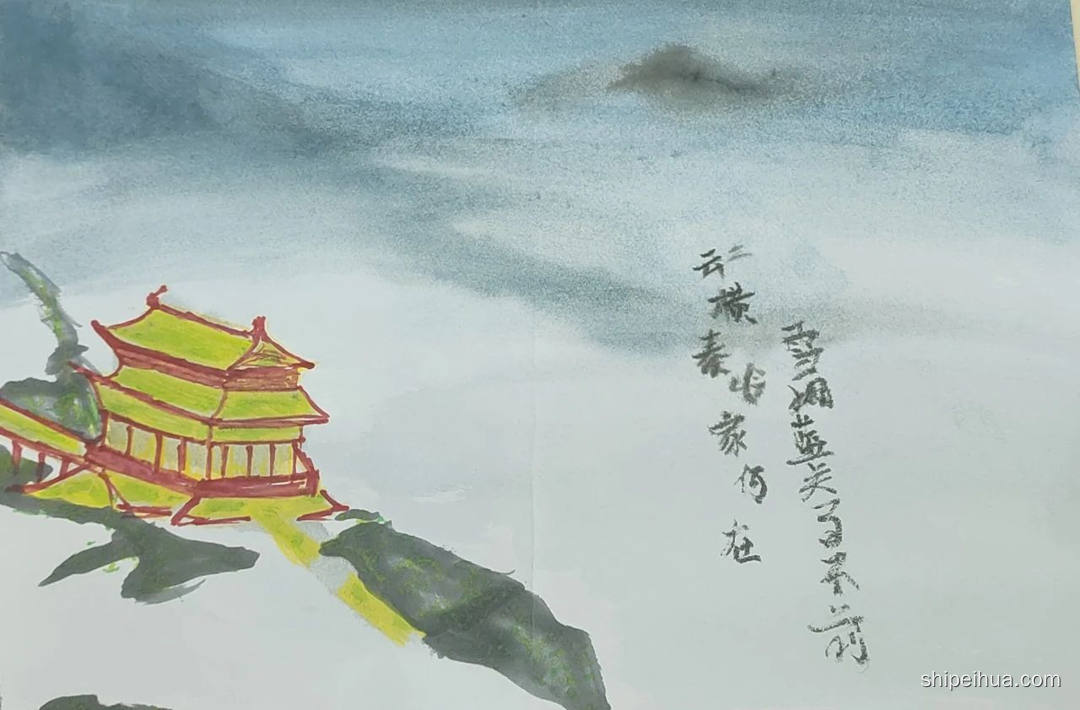 云横秦岭家何在
雪拥蓝关马不前
shipeihua.com